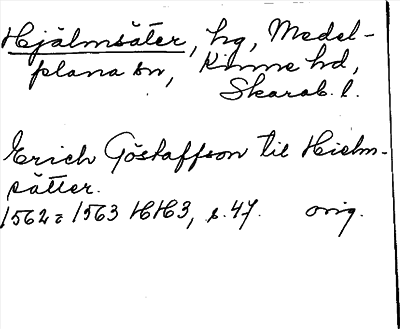 Hjälmsäter, hg, Medel-
plana sn, Kinne hd,
Skarab. l.
Erich Göstaffson til Hielm-
sätter.
1562=1563 HH3, s. 47. orig.